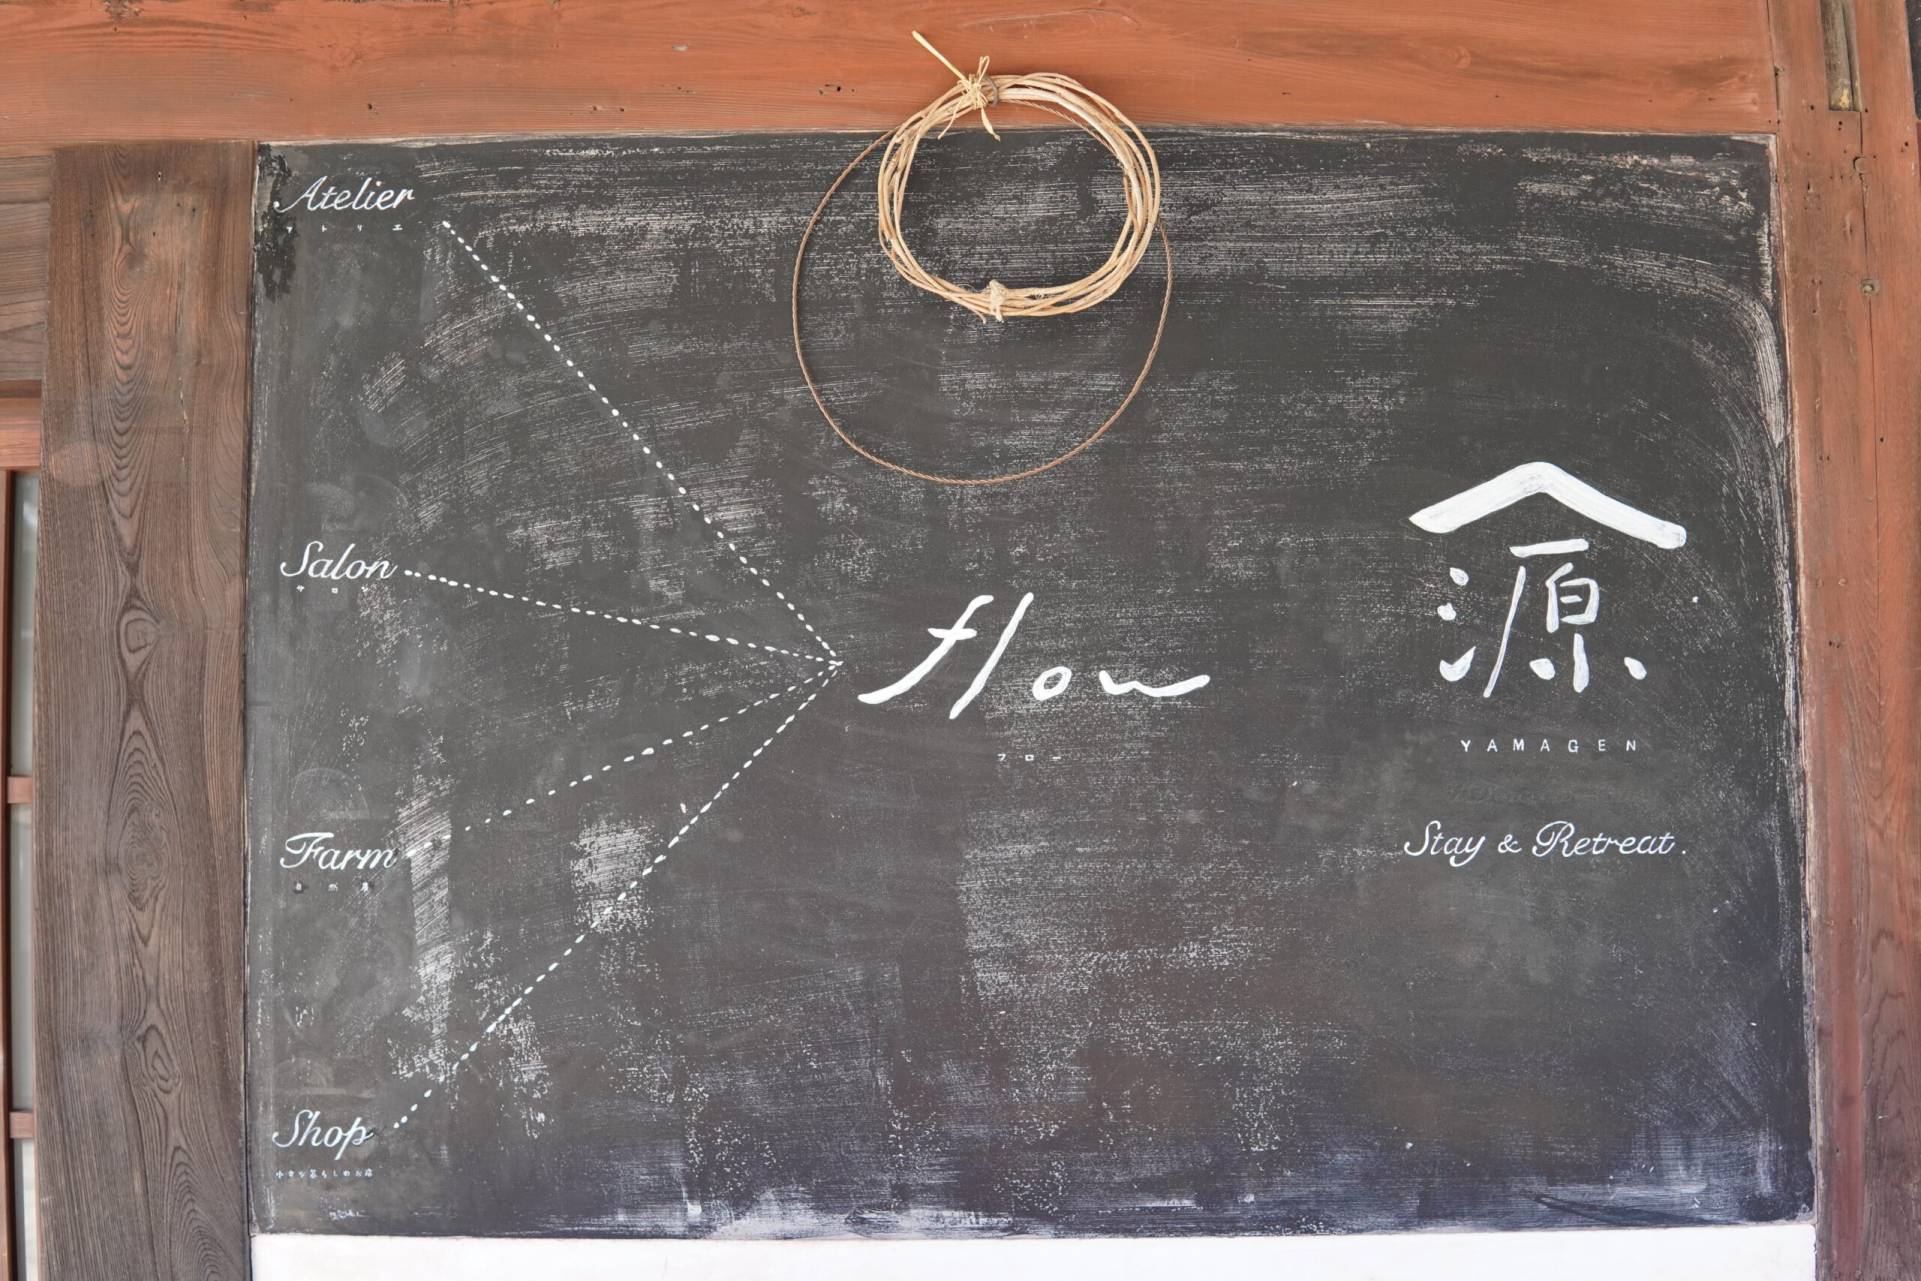 Atelier
アトリエ
Salon
サロン
Farm
自然農
Shop
小さな暮らしのお店
flow
フロー
源
YAMAGEN
Stay & Retreat.